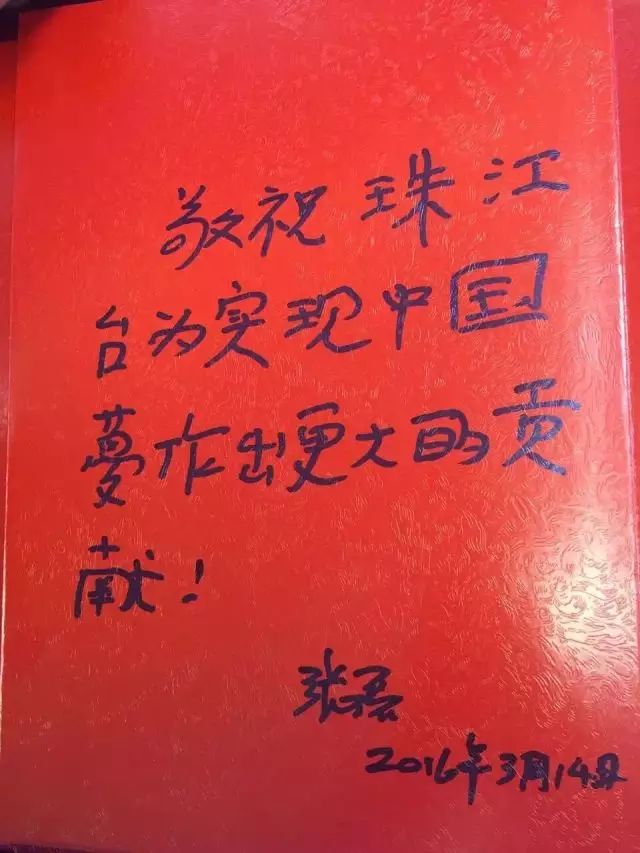 敬祝珠江
台为实现中国
夢作出更大的贡
献！
张
2016年3月14日